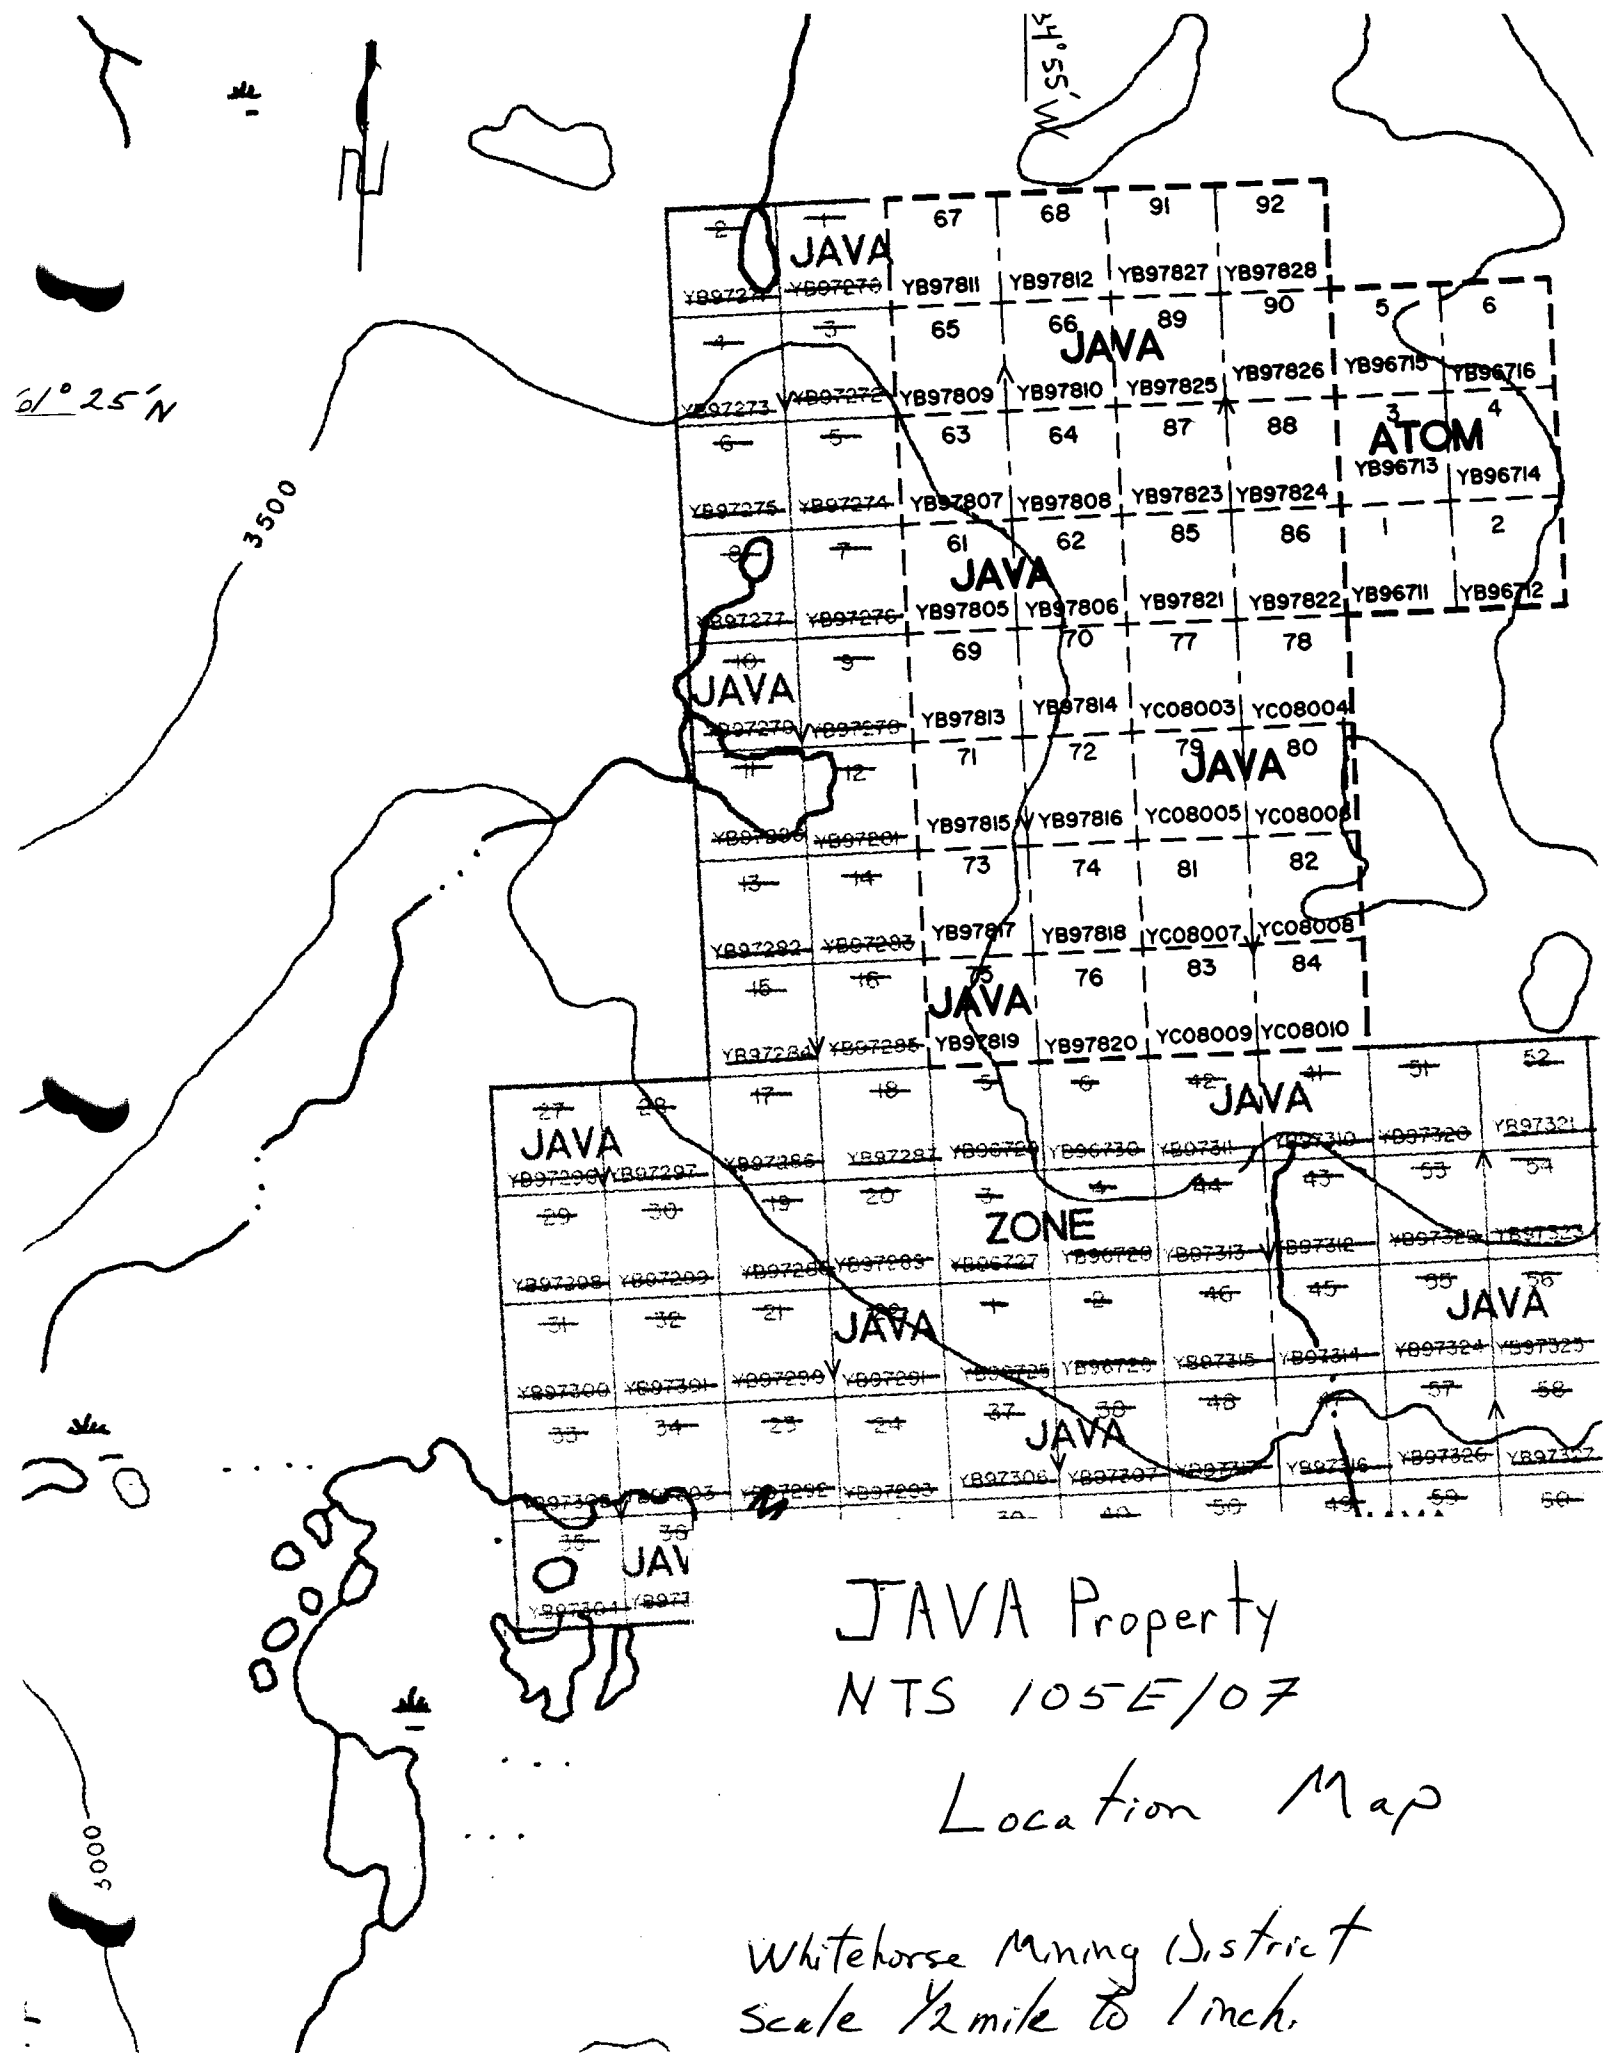 34°55'W
67 68 91 92
2 1
JAVA
YB97271 YB97270 YB97811 YB97812 YB97827 YB97828
65 66 89 90 5 6
4 3
JAVA
YB97273 YB97272 YB97809 YB97810 YB97825 YB97826 YB96715 YB96716
61° 25'N
6 5 63 64 87 88 3 4
ATOM
YB97275 YB97274 YB97807 YB97808 YB97823 YB97824 YB96713 YB96714
3500
8 7 61 62 85 86 1 2
JAVA
YB97277 YB97276 YB97805 YB97806 YB97821 YB97822 YB96711 YB96712
10 9 69 70 77 78
JAVA
YB97279 YB97278 YB97813 YB97814 YC08003 YC08004
11 12 71 72 79 80
JAVA
YB97280 YB97281 YB97815 YB97816 YC08005 YC08006
13 14 73 74 81 82
YB97282 YB97283 YB97817 YB97818 YC08007 YC08008
15 16 75 76 83 84
JAVA
YB97284 YB97285 YB97819 YB97820 YC08009 YC08010
27 28 17 18 5 6 42 41 51 52
JAVA JAVA
YB97296 YB97297 YB97286 YB97287 YB96729 YB96730 YB97311 YB97310 YB97320 YB97321
29 30 19 20 3 4 44 43 53 54
ZONE
YB97298 YB97299 YB97288 YB97289 YB96727 YB96728 YB97313 YB97312 YB97322 YB97323
31 32 21 22 1 2 46 45 55 56
JAVA JAVA
YB97300 YB97301 YB97290 YB97291 YB96725 YB96726 YB97315 YB97314 YB97324 YB97325
33 34 23 24 37 38 48 47 57 58
JAVA
YB97302 YB97303 YB97292 YB97293 YB97306 YB97307 YB97317 YB97316 YB97326 YB97327
35 36 39 40 50 49 59 60
JAVA
YB97304 YB973
JAVA Property
NTS 105E/07
Location Map
3000
Whitehorse Mining District
scale 1/2 mile to 1 inch.